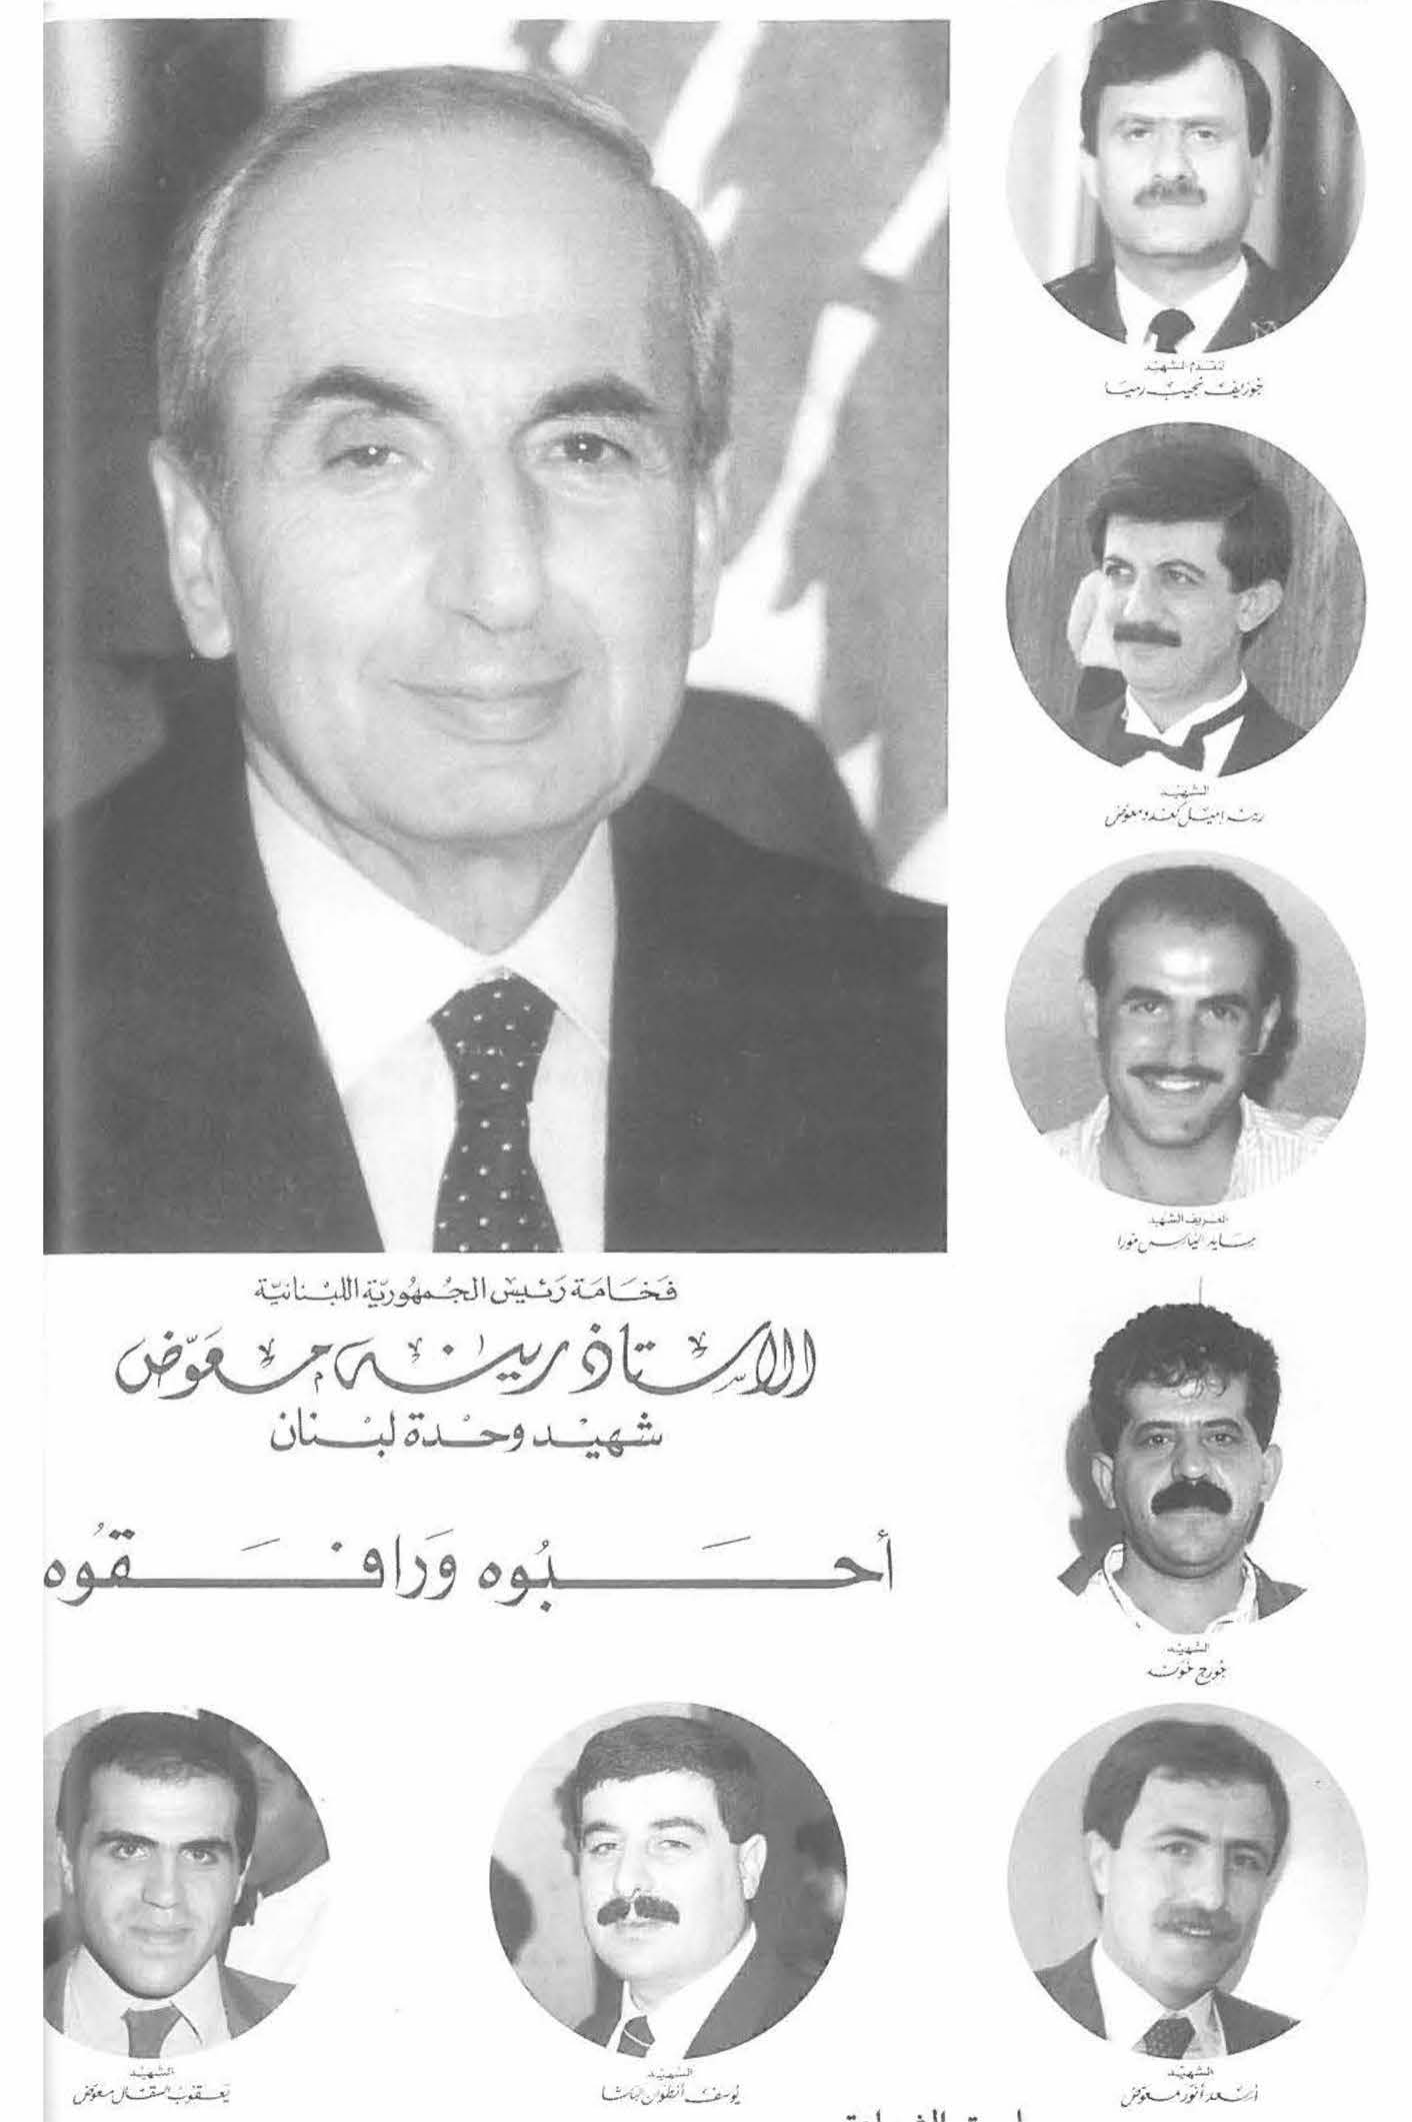 فخامة رئيس الجمهورية اللبنانية
الاستاذ رينه معوّض
شهيد وحدة لبنان
أحبّوه ورافقوه
المقدم الشهيد
جوزيف نجيب رميا
الشهيد
رينه إميل كعدو معوض
العريف الشهيد
سايد الياس مورا
الشهيد
جورج خونه
الشهيد
أسعد أنور معوض
الشهيد
يوسف أنطون الباشا
الشهيد
يعقوب السقال معوض